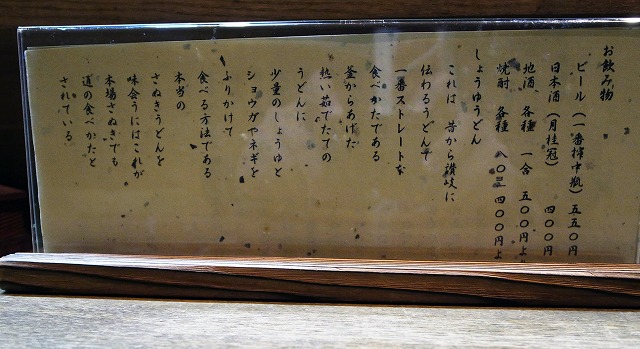 お飲み物
ビール(一番搾中瓶)五五〇円
日本酒(月桂冠) 四〇〇円
地酒 各種 一合 五〇〇円より
焼酎 各種 八〇㎖ 四〇〇円よ
しょうゆうどん
これは 昔から讃岐に
伝わるうどんで
一番ストレートな
食べかたである
釜からあげた
熱い茹でたての
うどんに
少量のしょうゆと
ショウガやネギを
ふりかけて
食べる方法である
本当の
さぬきうどんを
味会うにはこれが
本場さぬきでも
通の食べかたと
されている